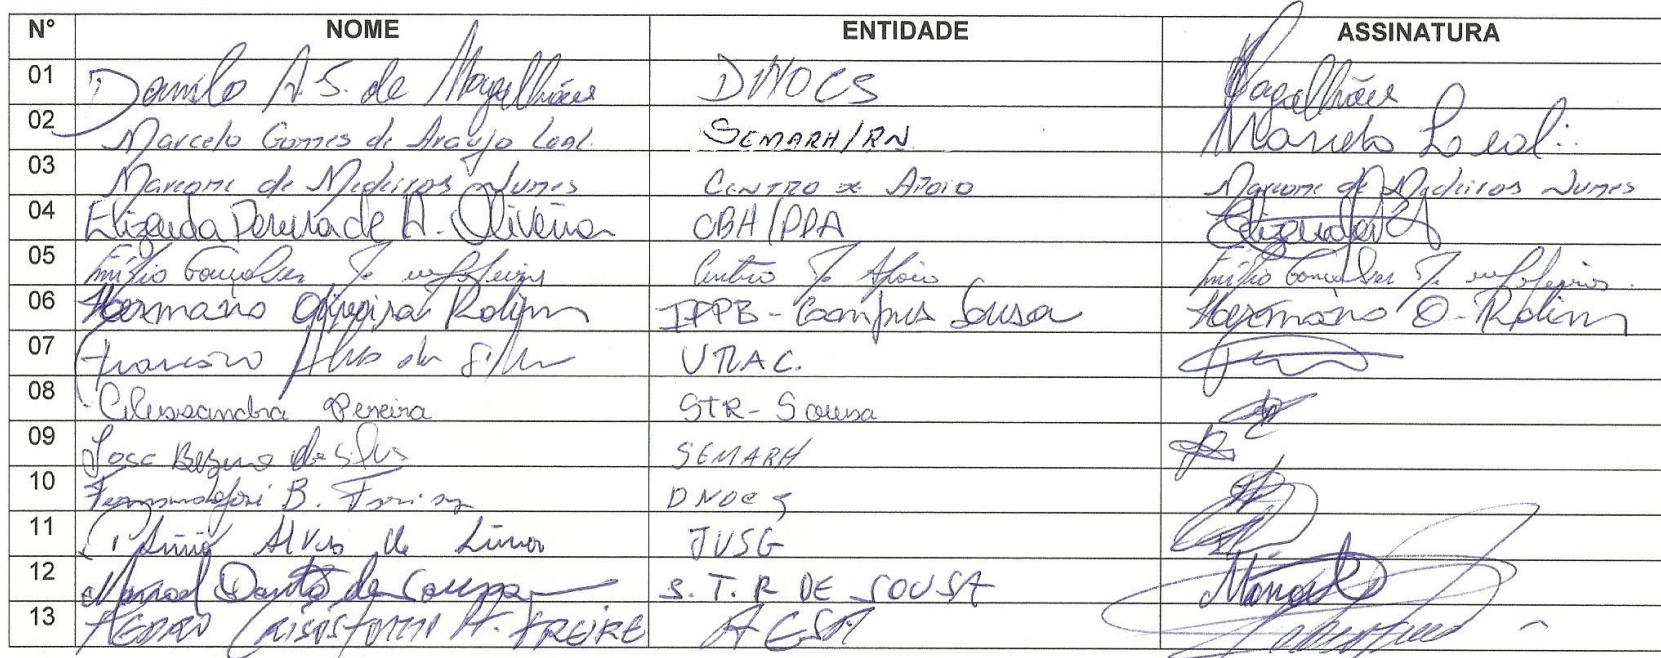 N° NOME ENTIDADE ASSINATURA
01 Danilo A. S. de Magalhães DNOCS Magalhães
02 Marcelo Gomes de Araújo Leal. SEMARH/RN Marcelo Leal.
03 Marconi de Medeiros Nunes CENTRO DE APOIO Marconi de Medeiros Nunes
04 Elizeuda Pereira de A. Oliveira CBH/PPA Elizeuda
05 Emídio Gonçalves de Medeiros Centro de Apoio Emídio Gonçalves de Medeiros.
06 Hermano Oliveira Rolim IFPB - Campus Sousa Hermano O. Rolim
07 Francisco Alves da Silva
08 Alessandra Pereira STR - Sousa
09 Jose Bezerra da Silva SEMARH
10 B. DNOCS
11 Alves de Lima JUSG
12 Manoel Dantas de Sousa S.T.R DE SOUSA Manoel
13 PEDRO CRISÓSTOMO A. FREIRE AESA